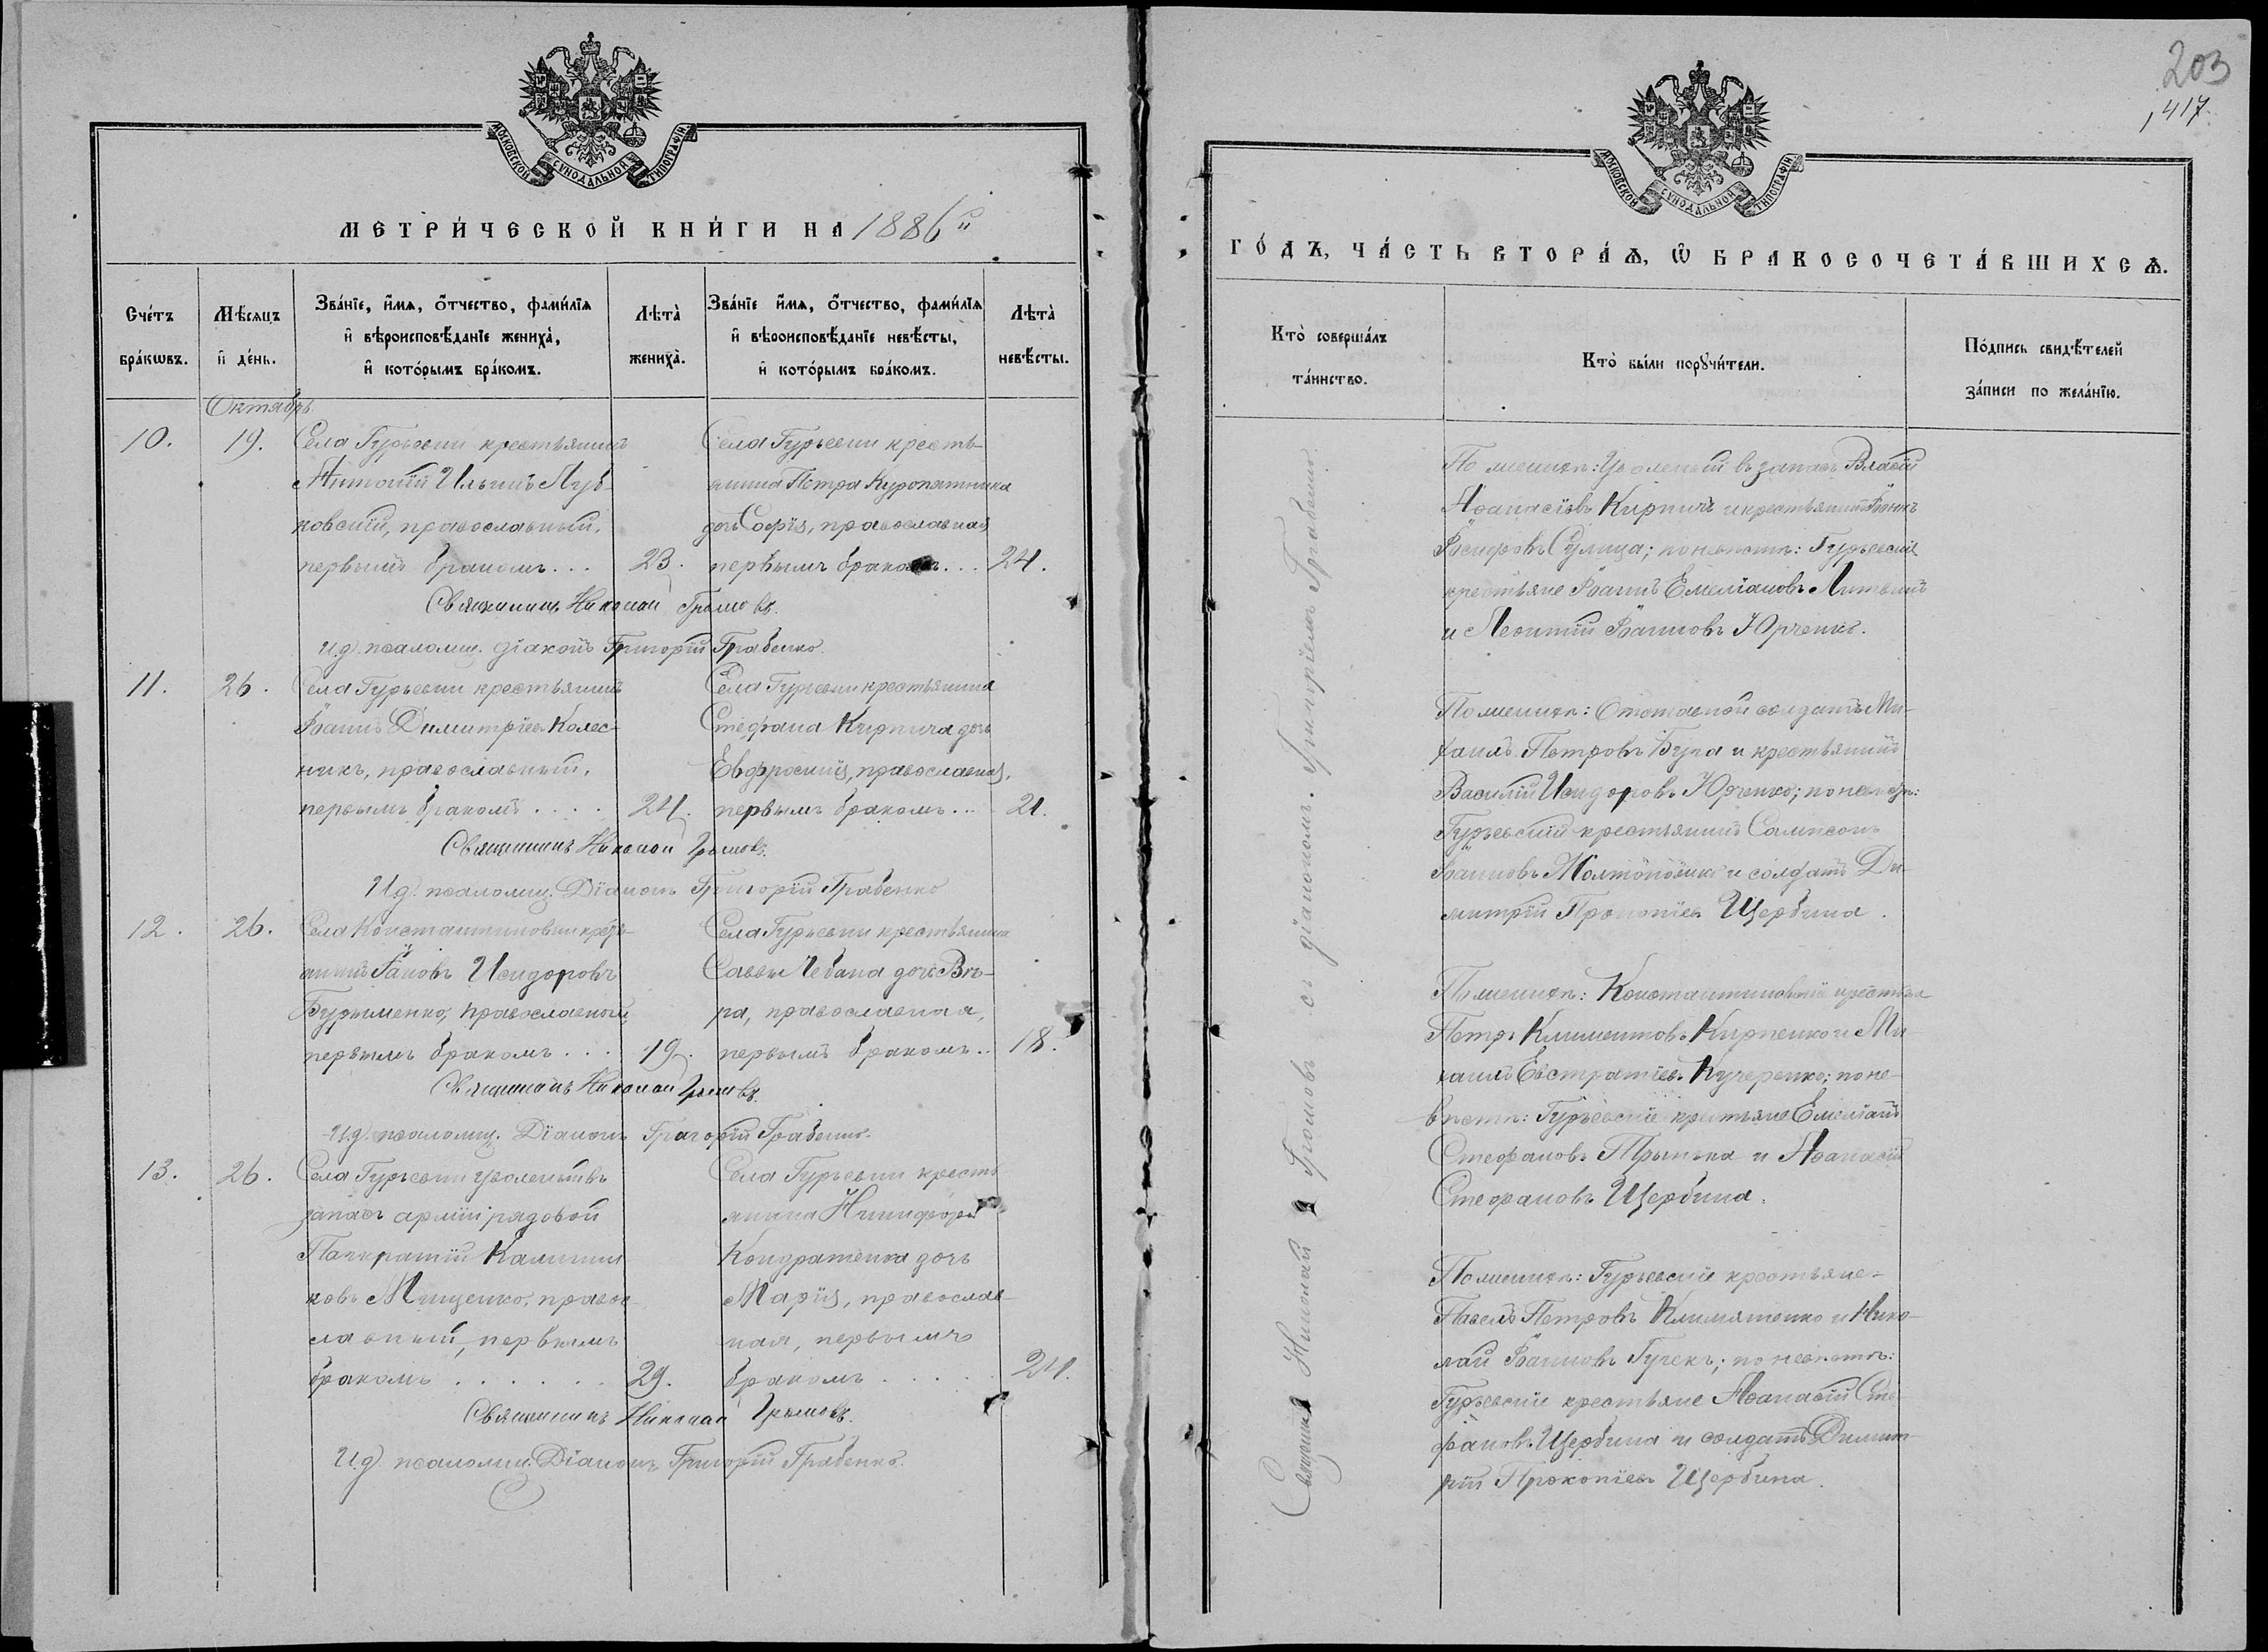 МОСКОВСКОЙ СѴНОДАЛЬНОЙ ТИПОГРАФІИ.
МЕТРИ́ЧЕСКОЙ КНИ́ГИ НА 1886 й
Сче́тъ бра́кѡвъ.
Мѣ́сяцъ и҆ де́нь.
Зва́нїе, и҆́мѧ, ѻ҆́тчество, фами́лїѧ
и҆ вѣроисповѣ́данїе жениха̀,
и҆ кото́рымъ бра́комъ.
Лѣта̀ жениха̀.
Зва́нїе и҆́мѧ, ѻ҆́тчество, фами́лїѧ
и҆ вѣроисповѣ́данїе невѣ́сты,
и҆ кото́рымъ бра́комъ.
Лѣта̀ невѣ́сты.
Октябрь.
10.
19.
Села Гурьевки крестьянинъ
Антоній Ильинъ Луб-
ковскій, православный,
первымъ бракомъ...
23.
Села Гурьевки кресть-
янина Петра Куропятника
дочь Софія, православная
первымъ бракомъ...
24.
Священникъ Николай Громовъ.
И.д. псаломщ. діаконъ Григорій Грабенко.
11.
26.
Села Гурьевки крестьянинъ
Іоаннъ Димитріевъ Колес-
никъ, православный,
первымъ бракомъ....
24.
Села Гурьевки крестьянина
Стефана Кирпича дочь
Евфросинія, православная,
первымъ бракомъ...
21.
Священникъ Николай Громовъ.
И.д. псаломщ. Діаконъ Григорій Грабенко
12.
26.
Села Константиновки крестья-
нинъ Іаковъ Исидоровъ
Бурыменко, православный,
первымъ бракомъ...
19.
Села Гурьевки крестьянина
Саввы Чебана дочь Вѣ-
ра, православная,
первымъ бракомъ..
18.
Священникъ Николай Громовъ.
И.д. псаломщ. Діаконъ Григорій Грабенко.
13.
26.
Села Гурьевки уволенный въ
запасъ арміи рядовой
Панкратій Каллини-
ковъ Мищенко, правос-
лавный, первымъ
бракомъ......
29.
Села Гурьевки кресть
янина Никифора
Кондратенка дочь
Марія, православ-
ная, первымъ
бракомъ.....
24.
Священникъ Николай Громовъ.
И.д. псаломщ. Діаконъ Григорій Грабенко.
203
417.
МОСКОВСКОЙ СѴНОДАЛЬНОЙ ТИПОГРАФІИ.
ГО́ДЪ, ЧА́СТЬ ВТОРА́Ѧ, Ѡ҆ БРАКОСОЧЕТА́ВШИХСѦ.
Кто̀ соверша́лъ
та́инство.
Кто̀ бы́ли порꙋчи́тели.
По́дпись свидѣ́телей
за́писи по жела́нїю.
Священникъ Николай Громовъ съ діакономъ Григоріемъ Грабенко.
По женихѣ: Уволенный въ запасъ Власій
Аѳанасіевъ Кирпичъ и крестьянинъ
Іосифовъ Сулица; по невѣстѣ: Гурьевскіе
крестьяне Іоаннъ Емеліановъ Литвинъ
и Леонтій Іоанновъ Юрченко.
По женихѣ: Отставной солдатъ Ми-
хаилъ Петровъ Бука и крестьянинъ
Василій Исидоровъ Юрченко; по невѣстѣ:
Гурьевскій крестьянинъ Сампсонъ
Іоанновъ Желтоножко и солдатъ Ди-
митрій Прокопіевъ Щербина.
По женихѣ: Константиновскіе крестьяне
Петръ Климентовъ Кирпенко и Ми
хаилъ Евстратіевъ Кучеренко; по не-
вѣстѣ: Гурьевскіе крестьяне Емеліанъ
Стефановъ Трынька и Аѳанасій
Стефановъ Щербина.
По женихѣ: Гурьевскіе крестьяне-
Павелъ Петровъ Климятенко и Нико-
лай Іоанновъ Гучекъ; по невѣстѣ:
Гурьевскіе крестьяне Аѳанасій Сте-
фановъ Щербина и солдатъ Димит-
рій Прокопіевъ Щербина.